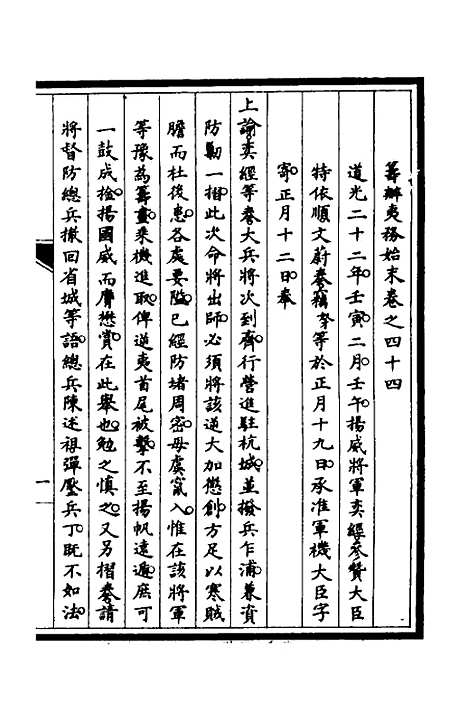 籌辦夷務始末卷之四十四
道光二十二年壬寅二月壬午揚威將軍奕經參贊大臣
特依順文蔚奏竊奴才等於正月十九日承准軍機大臣字
寄正月十二日奉
上諭奕經等奏大兵將次到齊行營進駐杭城並撥兵乍浦兼資
防勦一摺此次命將出師必須將該逆大加懲創方足以寒賊
膽而杜後患各處要隘已經防堵周密毋虞竄入惟在該將軍
等豫為籌畫乘機進取俾逆夷首尾被擊不至揚帆遠遁庶可
一鼓成擒揚國威而膺懋賞在此舉也勉之慎之又另摺奏請
將督防總兵撤回省城等語總兵陳述祖彈壓兵丁既不如法
一